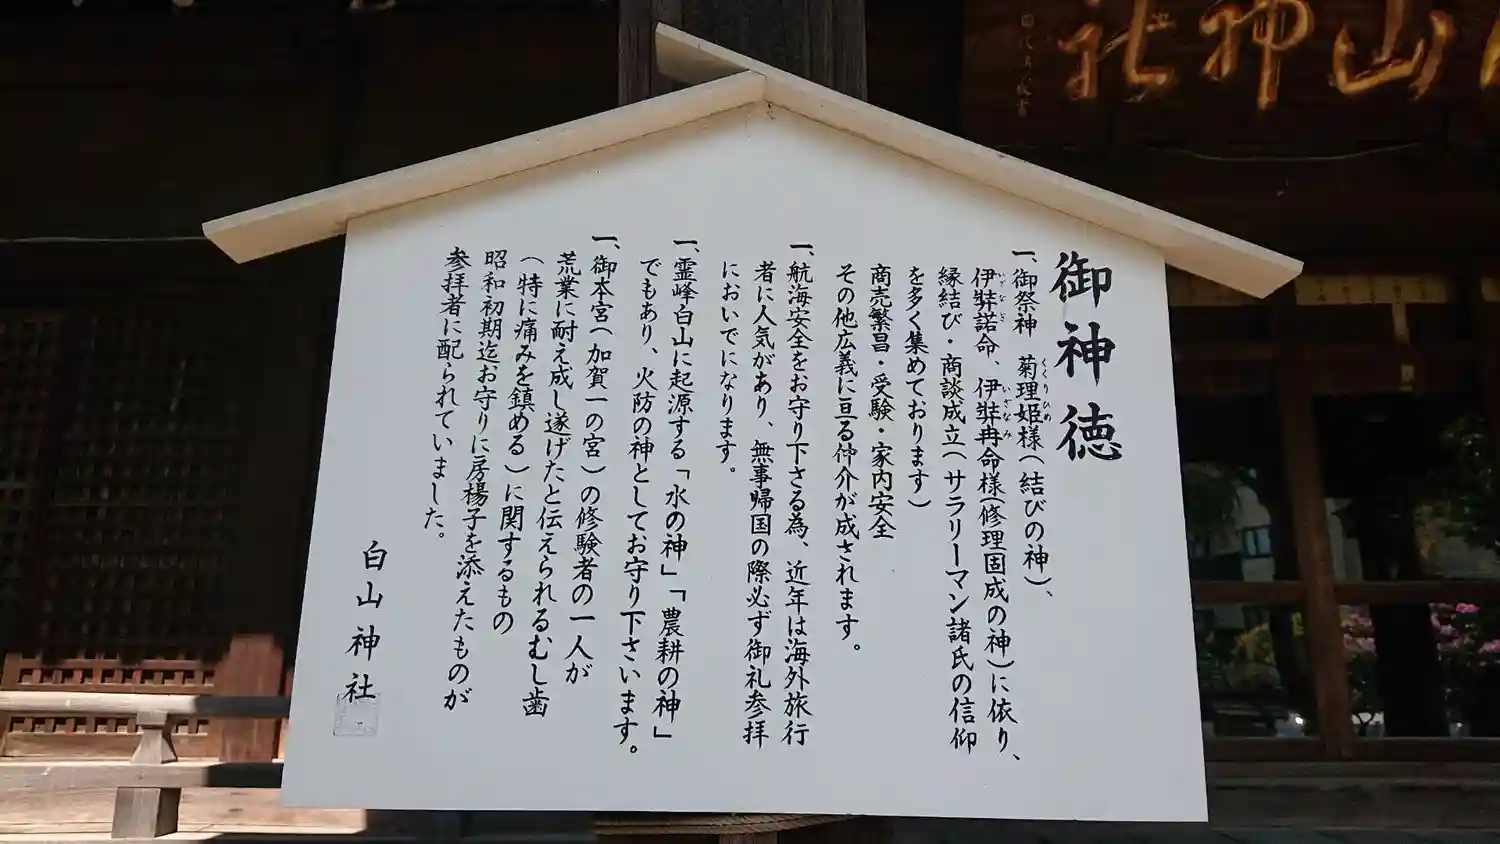 白山神社
御神徳
一、御祭神　菊理姫様(結びの神)、
くくりひめ
伊弉諾命、伊弉冉命様(修理固成の神)に依り、
いざなぎ
いざなみ
縁結び・商談成立(サラリーマン諸氏の信仰
を多く集めております)
商売繁昌・受験・家内安全
その他広義に亘る仲介が成されます。
一、航海安全をお守り下さる為、近年は海外旅行
者に人気があり、無事帰国の際必ず御礼参拝
においでになります。
一、霊峰白山に起源する「水の神」「農耕の神」
でもあり、火防の神としてお守り下さいます。
一、御本宮(加賀一の宮)の修験者の一人が
荒業に耐え成し遂げたと伝えられるむし歯
(特に痛みを鎮める)に関するもの
昭和初期迄お守りに房楊子を添えたものが
参拝者に配られていました。
白山神社